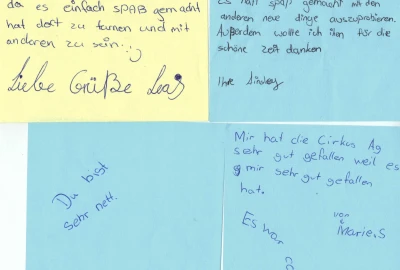 da es einfach SPAß gemacht
hat dort zu turnen und mit
anderen zu sein...:)
Liebe Grüße Lea
Es hat spaß gemacht mit den
anderen neue dinge auszuprobieren.
Außerdem wollte ich ihn für die
schöne zeit danken
Ihre
Du bist
sehr nett.
Mir hat die Cirkus Ag
sehr gut gefallen weil es
mir sehr gut gefallen
hat.
von
Marie.S
Es war